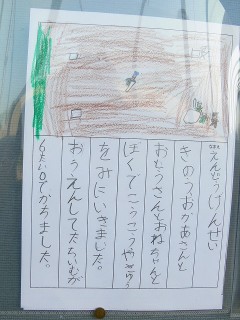 えんどうけんせい
きのうおかあさんと
おとうさんとおねちゃんと
ぼくでこうこうやきゅう
をみにいきました。
おうえんしてたちいむが
6たい0でかちました。